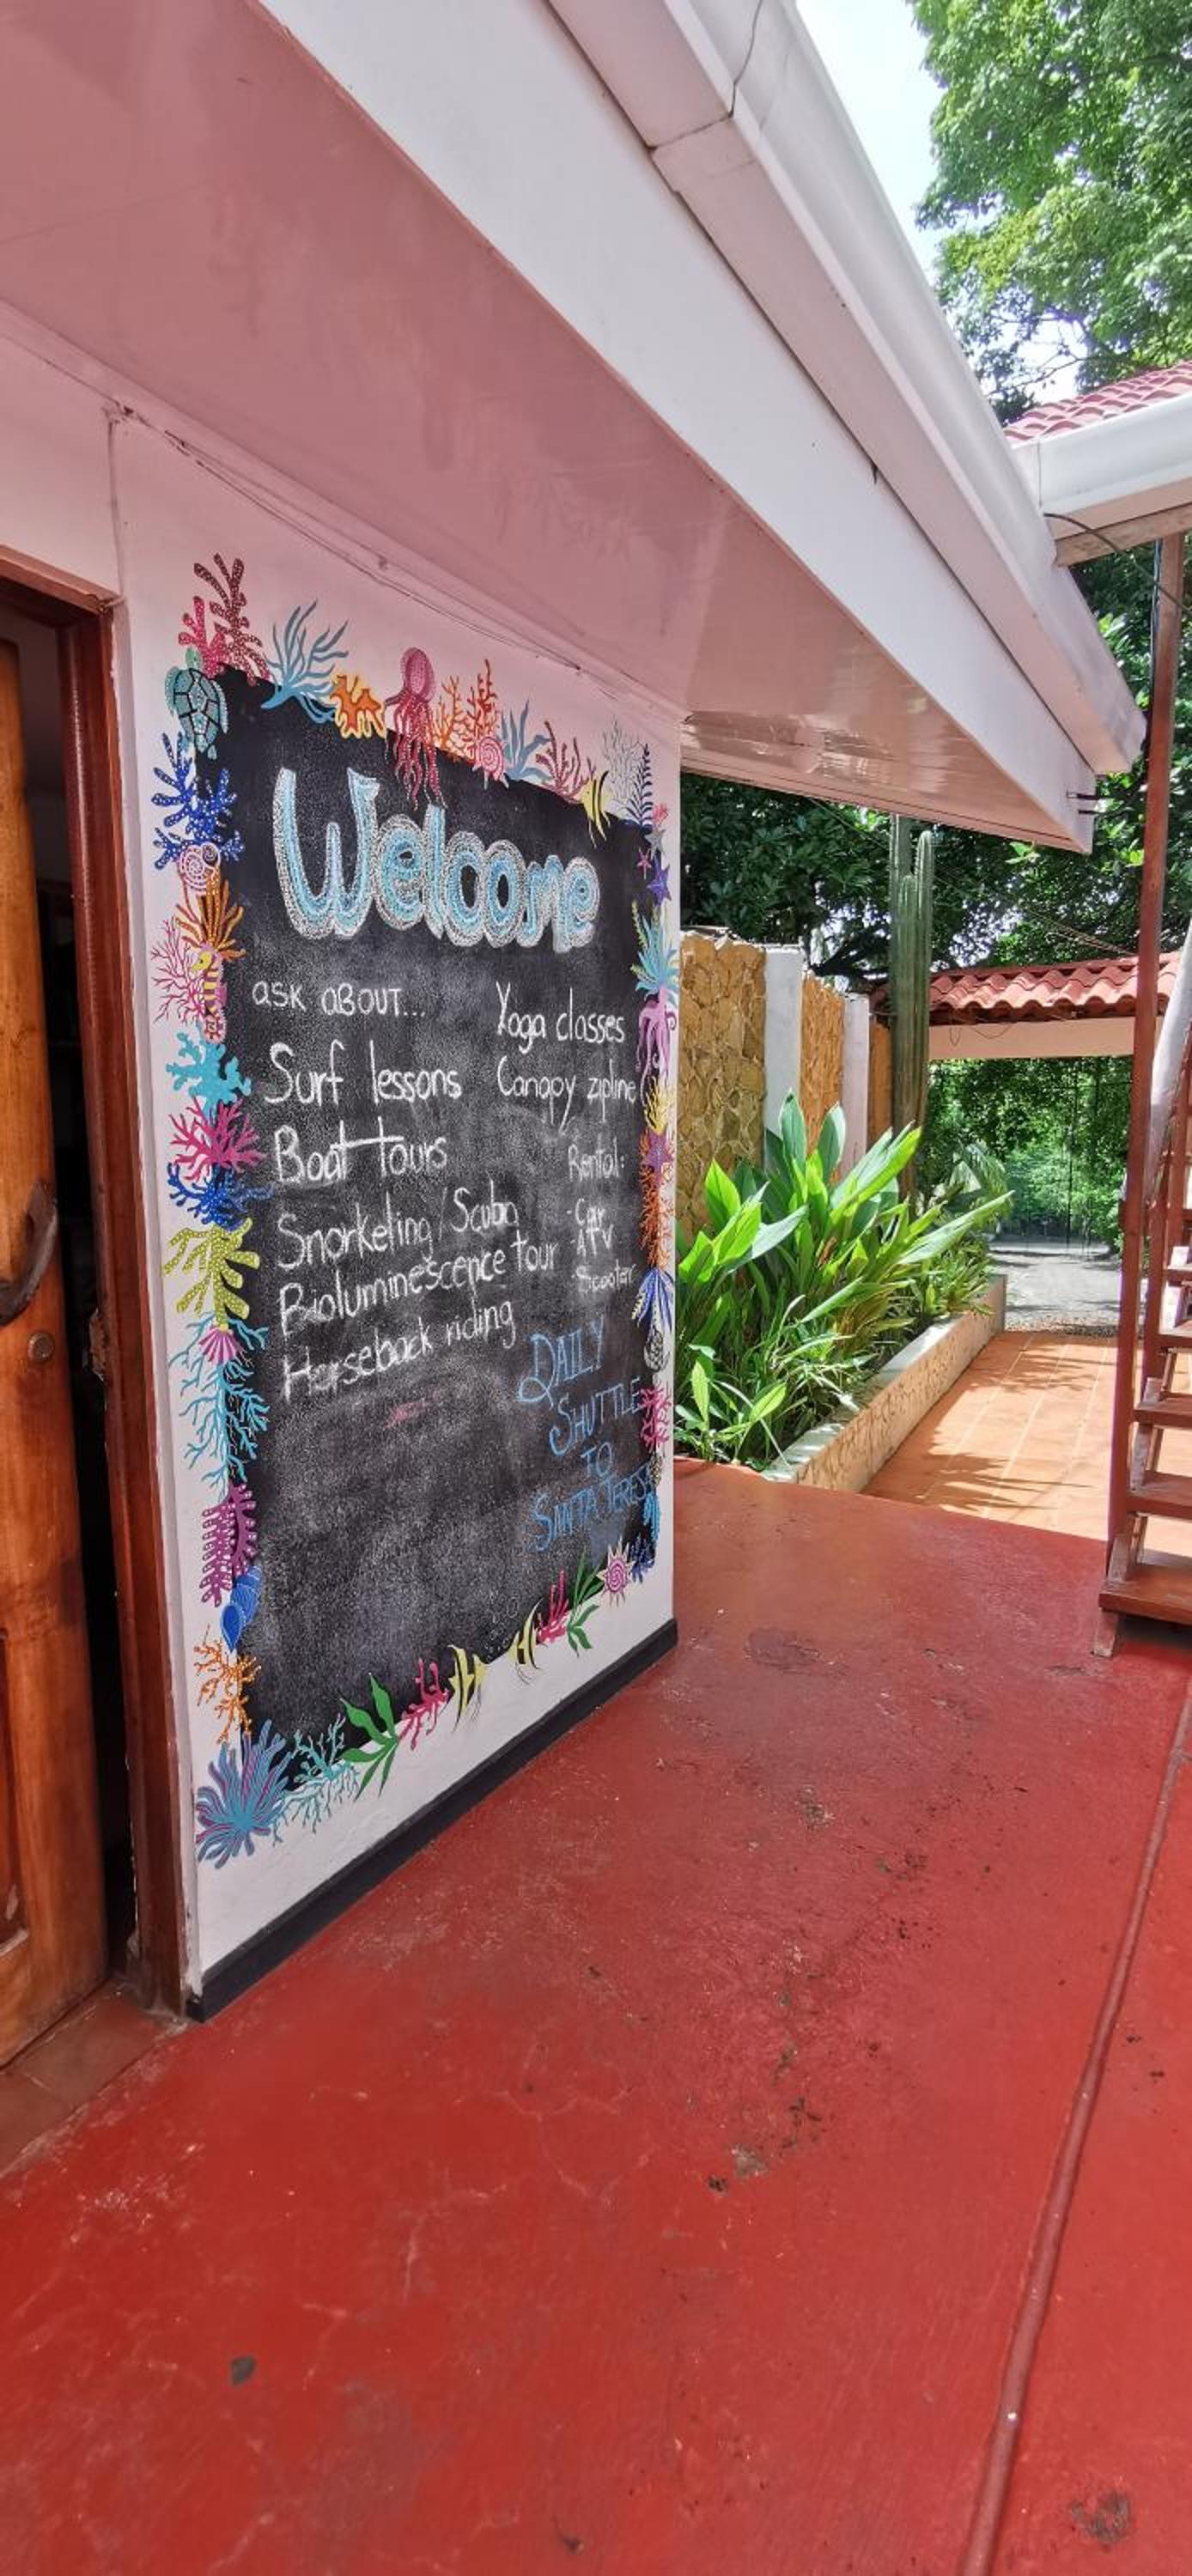 Welcome
ASK ABOUT...
Surf lessons
Boat tours
Snorkeling / Scuba
Bioluminescence tour
Horseback riding
Yoga classes
Canopy zipline
Rental:
- Car
- ATV
- Scooter
DAILY
SHUTTLE
TO
SANTA TERESA